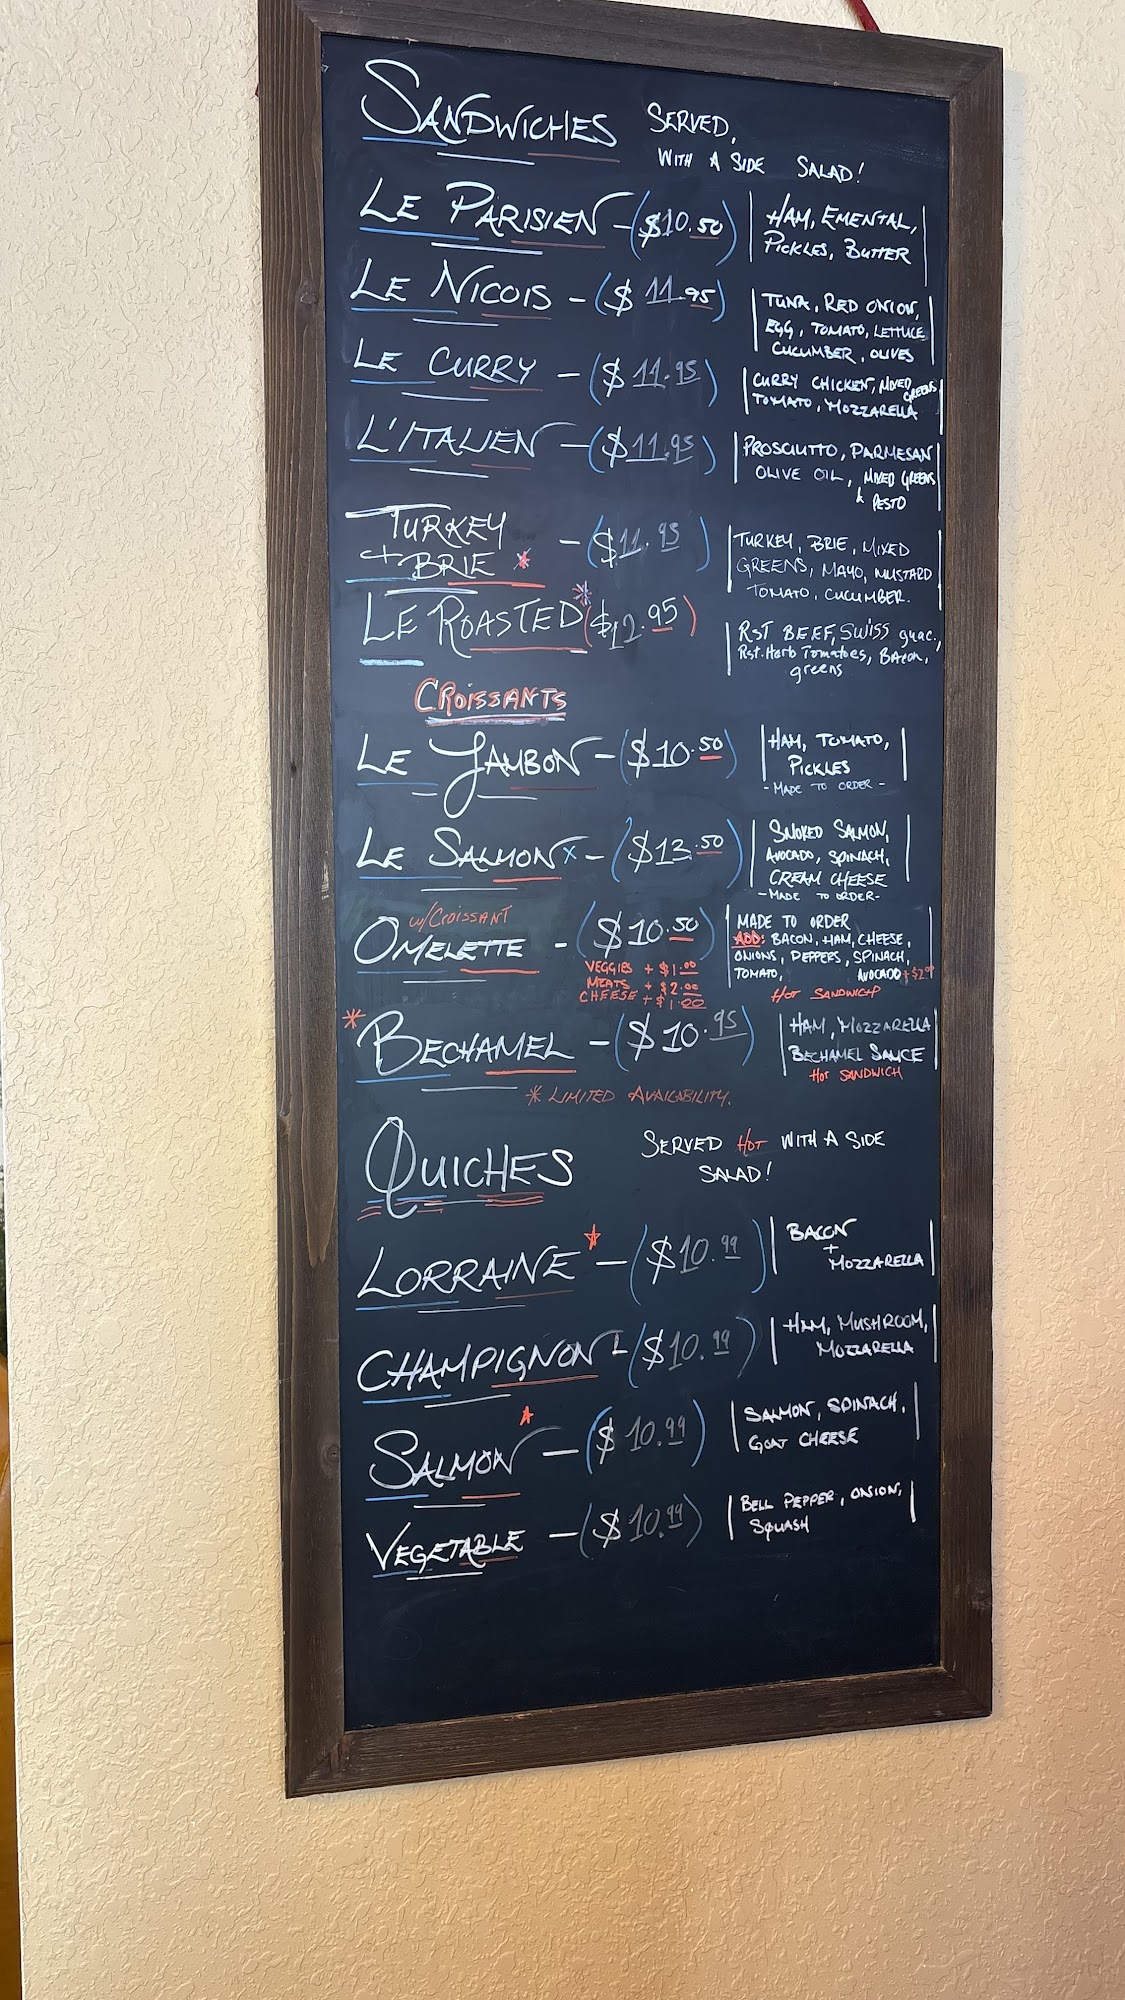 SANDWICHES SERVED,
WITH A SIDE SALAD!
LE PARISIEN - ($10.50) HAM, EMENTAL,
PICKLES, BUTTER
LE NICOIS - ($11.95) TUNA, RED ONION,
EGG, TOMATO, LETTUCE
CUCUMBER, OLIVES
LE CURRY - ($11.95) CURRY CHICKEN, MIXED GREENS
TOMATO, MOZZARELLA
L'ITALIEN - ($11.95) PROSCIUTTO, PARMESAN
OLIVE OIL, MIXED GREENS
& PESTO
TURKEY
+ BRIE * - ($11.95) TURKEY, BRIE, MIXED
GREENS, MAYO, MUSTARD
TOMATO, CUCUMBER.
LE ROASTED * ($12.95) RST BEEF, SWISS guac.,
Rst. Herb Tomatoes, BAcon,
greens
CROISSANTS
LE JAMBON - ($10.50) HAM, TOMATO,
PICKLES
- MADE TO ORDER -
LE SALMON x - ($13.50) SMOKED SALMON,
AVOCADO, SPINACH,
CREAM CHEESE
- MADE TO ORDER -
w/CROISSANT
OMELETTE - ($10.50) MADE TO ORDER
ADD: BACON, HAM, CHEESE,
ONIONS, PEPPERS, SPINACH,
TOMATO, AVOCADO + $2.00
VEGGIES + $1.00
MEATS + $2.00
CHEESE + $1.00
HOT SANDWICH
* BECHAMEL - ($10.95) HAM, MOZZARELLA
BECHAMEL SAUCE
HOT SANDWICH
* LIMITED AVAILABILITY.
QUICHES SERVED HOT WITH A SIDE
SALAD!
LORRAINE * - ($10.99) BACON
+
MOZZARELLA
CHAMPIGNON - ($10.99) HAM, MUSHROOM,
MOZZARELLA
SALMON * - ($10.99) SALMON, SPINACH,
GOAT CHEESE
VEGETABLE - ($10.99) BELL PEPPER, ONION,
SQUASH